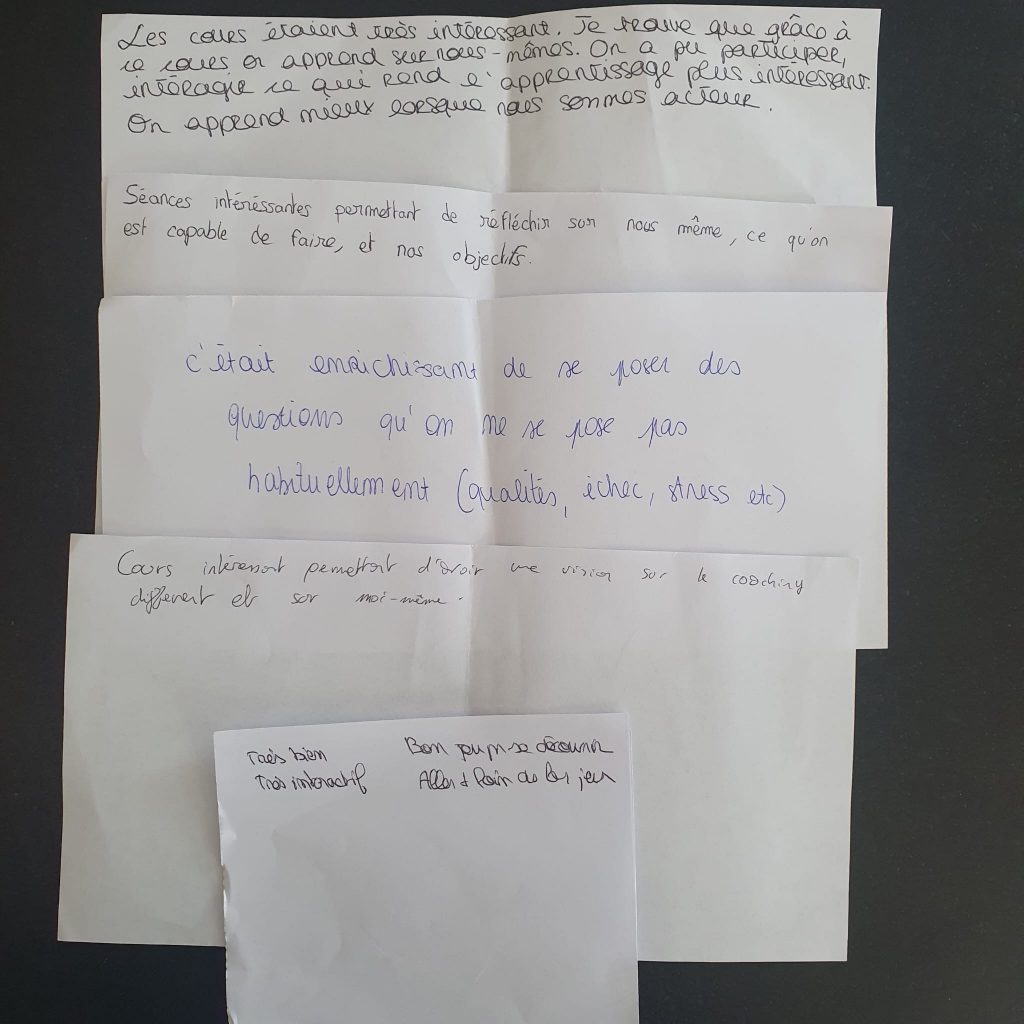 Les cours étaient très intéressant. Je trouve que grâce à
ce cours on apprend sur nous-mêmes. On a pu participer,
intéragir ce qui rend l'apprentissage plus intéressant.
On apprend mieux lorsque nous sommes acteur.
Séances intéréssantes permettant de réfléchir sur nous même, ce qu'on
est capable de faire, et nos objectifs.
c'était enrichissant de se poser des
questions qu'on ne se pose pas
habituellement (qualités, échec, stress etc)
Cours intéressant permettant d'avoir une vision sur le coaching
différent et sur moi-même.
Très bien
Très interactif
Bon jeu pr se découvrir
Aller + loin de les jeu